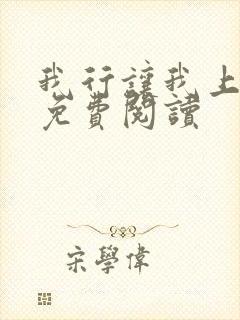 我行讓我上
免費閱讀
宋學偉